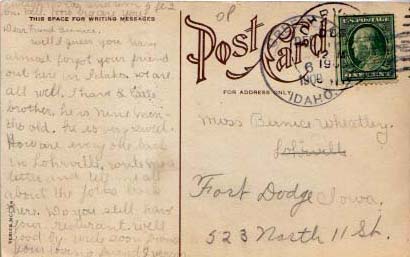 THIS SPACE FOR WRITING MESSAGES
Dear Friend Bernice.
well I guess you have
almost forgot your friend
out here in Idaho. we are
all well. I have a little
brother, he is nine
old. He is very
How are every one back
in Lohrville, write me a
letter and tell me all
about the folks back
there. Do you still have
your resturant. well
good by write soon from
your loving friend
Post Card.
FOR ADDRESS ONLY.
6
1908
IDAHO
U.S. POSTAGE
ONE CENT
Miss Bernice Wheatley.
Lohrville
Fort Dodge Iowa.
523 North 11 St.